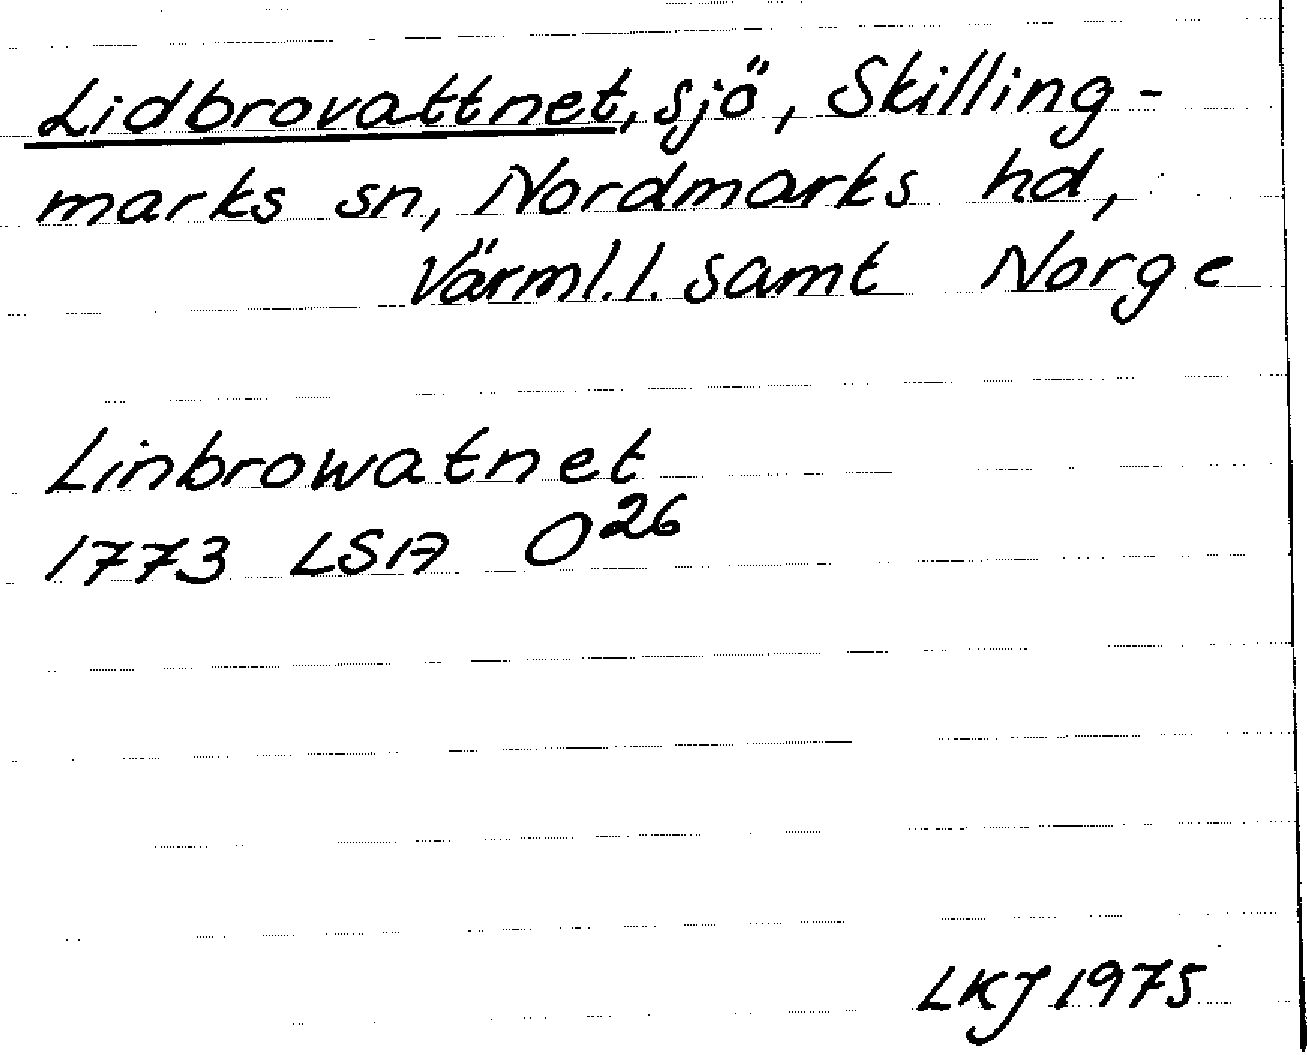 Lidbrovattnet, sjö, Skilling-
marks sn, Nordmarks hd,
Värml.l. samt Norge
Linbrowatnet
1773 LSA O26
LKJ 1975